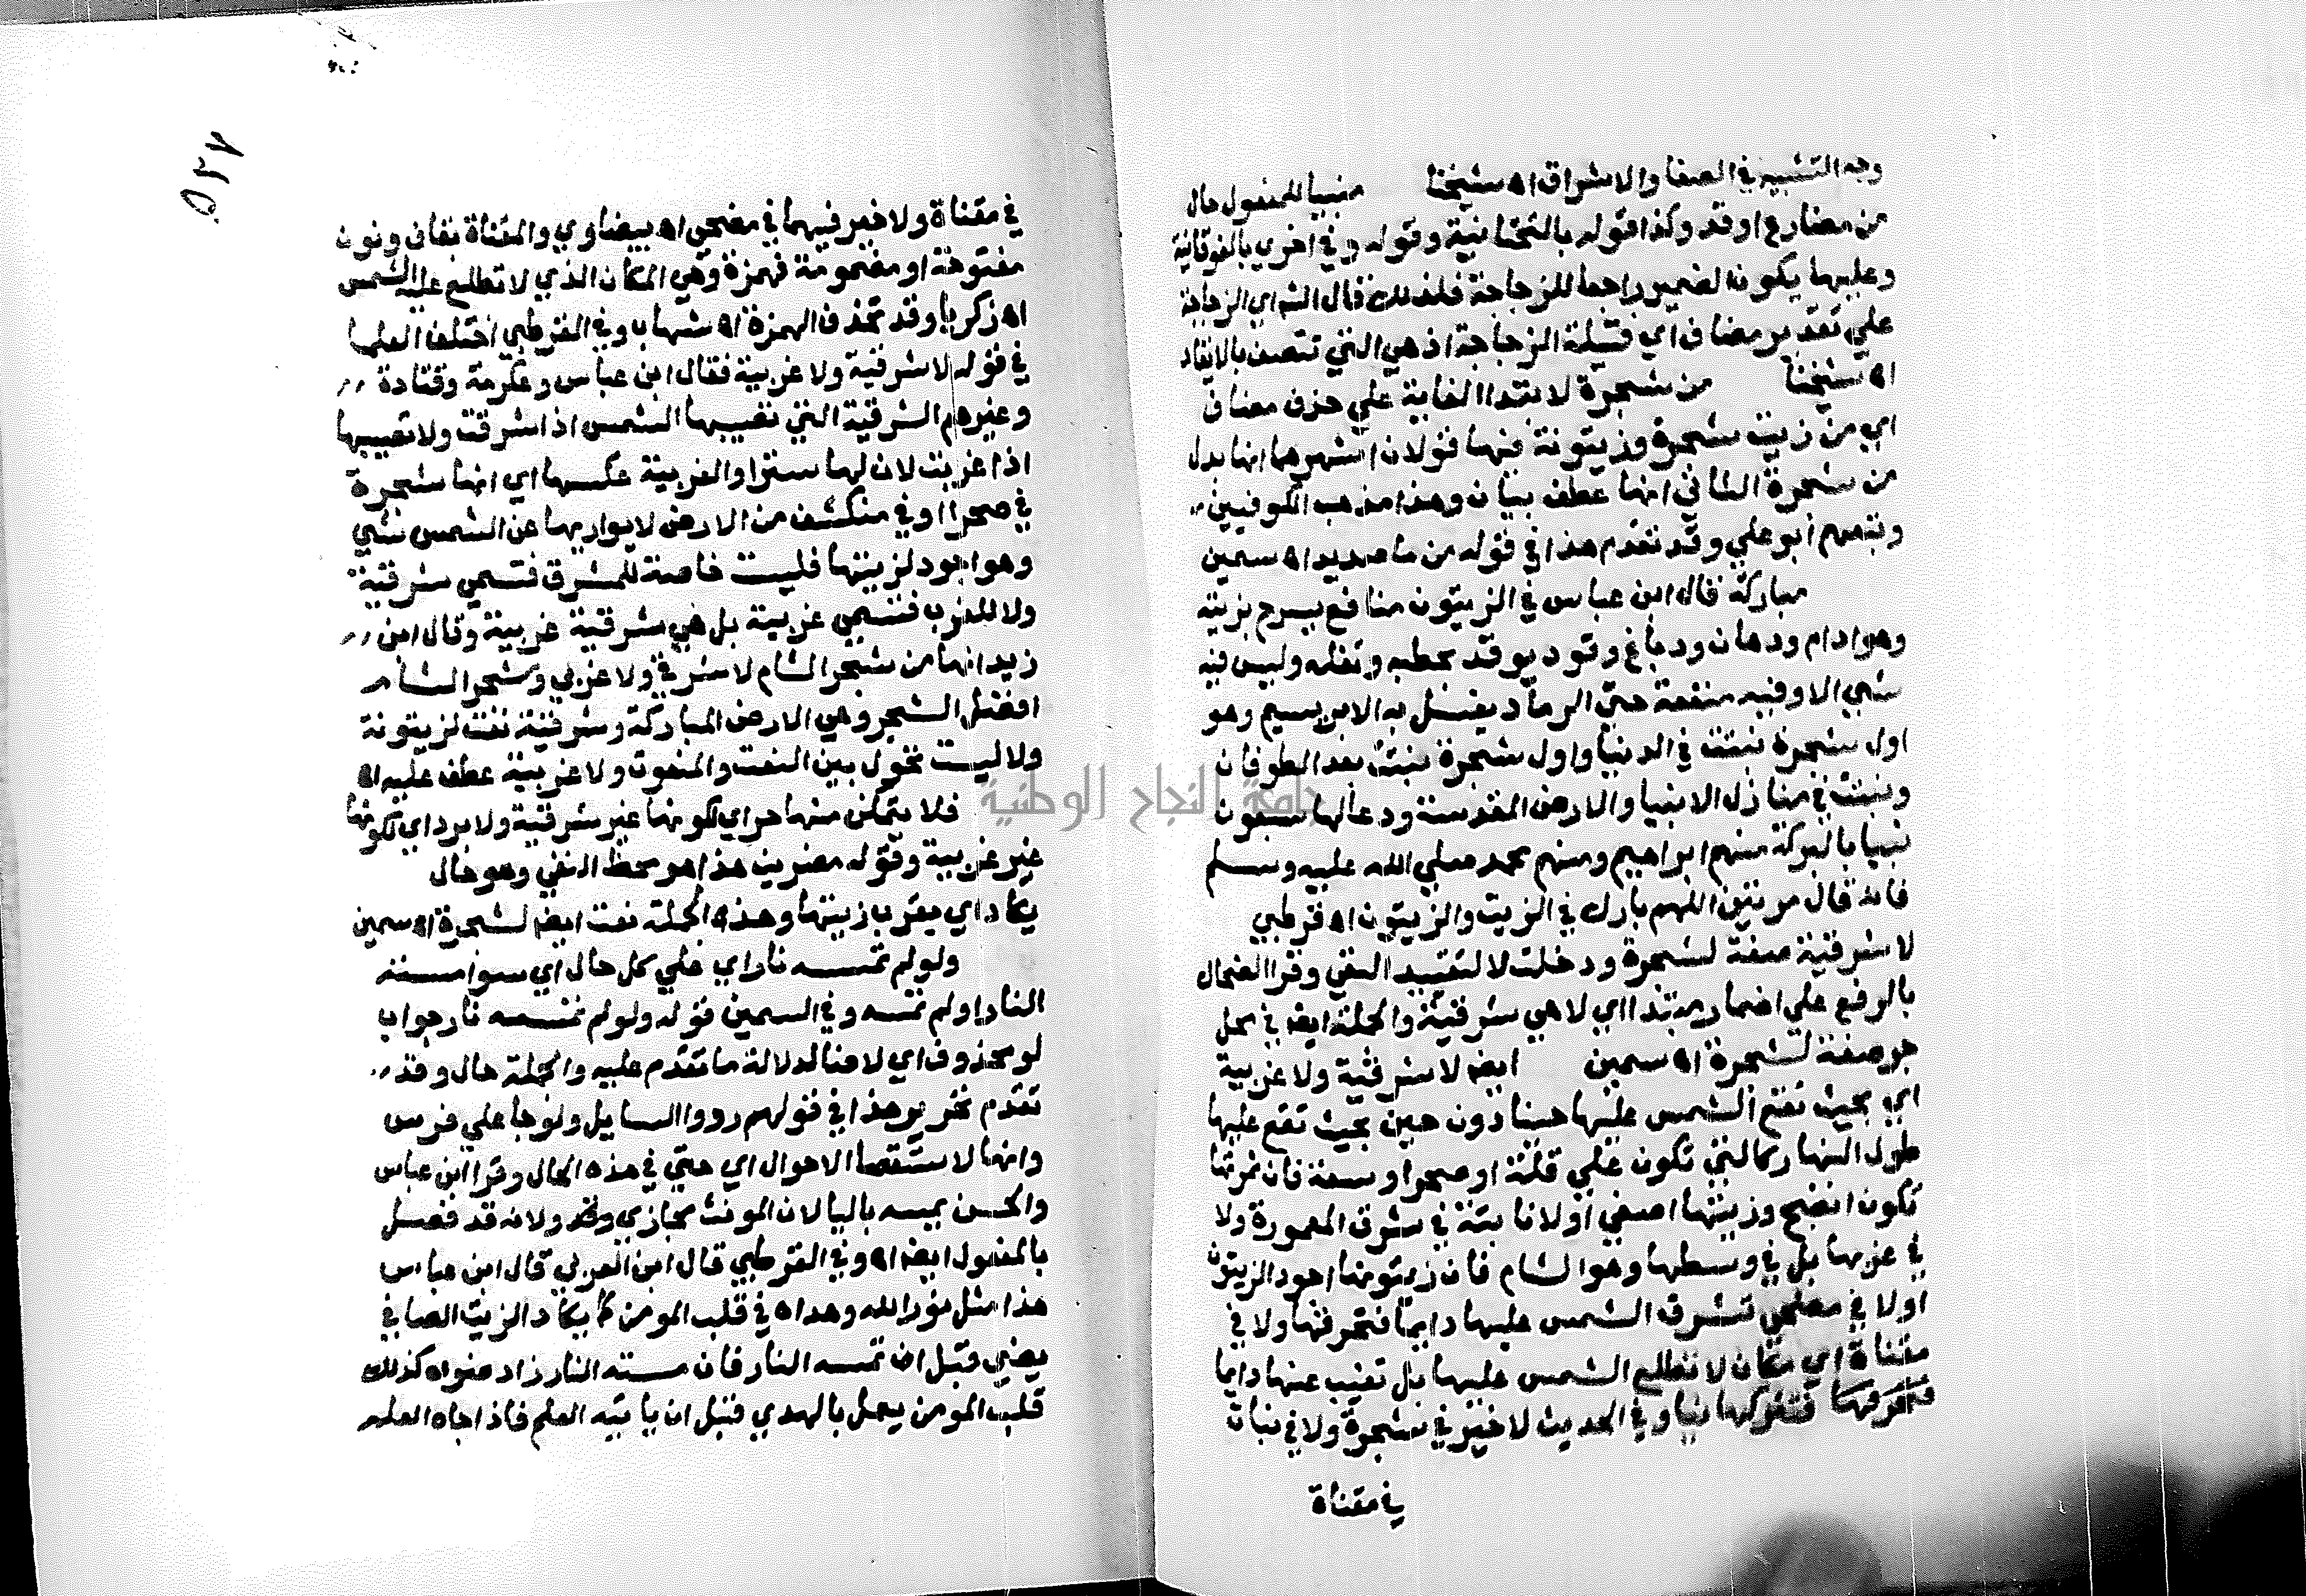 وجه التشبيه في الصفا والاشراق اه شيخنا مبنيا للمفعول حال
من مضارع اوقد وكذا قوله بالتحتانية وقوله وفي اخري بالفوقانية
وعليها يكون الضمير راجعا للزجاجة فلذلك قال الش اي الزجاجة
علي تقدير مضاف اي فتيلة الزجاجة اذ هي التي تتصف بالايقاد
اه شيخنا من شجرة لابتدا الغاية علي حذف مضاف
اي من زيت شجرة وزيتونة فيها قولان اشهرهما انها بدل
من شجرة الثاني انها عطف بيان وهذا مذهب الكوفيين
وتبعهم ابو علي وقد تقدم هذا في قوله من ما صديد اه سمين
مباركة قال ابن عباس في الزيتون منافع يسرج بزيته
وهو ادام ودهان ودباغ وقود يوقد بحطبه وتفله وليس فيه
شي الا وفيه منفعة حتي الرماد يغسل به الابريسم وهو
اول شجرة نبتت في الدنيا واول شجرة نبتت بعد الطوفان
ونبتت في منازل الانبيا والارض المقدسة ودعا لها سبعون
نبيا بالبركة منهم ابراهيم ومنهم محمد صلي الله عليه وسلم
فانه قال مرتين اللهم بارك في الزيت والزيتون اه قرطبي
لا شرقية صفة لشجرة ودخلت لا لتفيد النفي وقرا الضحاك
بالرفع علي اضمار مبتدا اي لا هي شرقية والجملة ايضا في محل
جر صفة لشجرة اه سمين ايضا لا شرقية ولا غربية
اي بحيث تقع الشمس عليها حينا دون حين بحيث تقع عليها
طول النهار كالتي تكون علي قلة او صحرا وسعة فان ثمرتها
تكون انضج وزيتها اصفي او لا نابتة في شرق المعمورة ولا
في غربها بل في وسطها وهو الشام فان زيتونها اجود الزيتون
او لا في مضحي تشرق الشمس عليها دايما فتحرقها ولا في
مقناة اي مكان لا تطلع الشمس عليها بل تغيب عنها دايما
فتتركها نيا وفي الحديث لا خير في شجرة ولا في نبات
في مقناة
٥٢٧
في مقناة ولا خير فيهما في مضحي اه بيضاوي والمقناة بقاف ونون
مفتوحة او مضمومة فهمزة وهي المكان الذي لا تطلع عليه الشمس
اه زكريا وقد تحذف الهمزة اه شهاب وفي القرطبي اختلف العلما
في قوله لا شرقية ولا غربية فقال ابن عباس وعكرمة وقتادة
وغيرهم الشرقية التي تصيبها الشمس اذا شرقت ولا تصيبها
اذا غربت لان لها سترا والغربية عكسها اي انها شجرة
في صحرا او في منكشف من الارض لا يواريها عن الشمس شي
وهو اجود لزيتها فليست خاصة للمشرق فتسمي شرقية
ولا للمغرب فتسمي غربية بل هي شرقية غربية وقال ابن
زيد انها من شجر الشام لا شرقي ولا غربي وشجر الشام
افضل الشجر وهي الارض المباركة وشرقية نعت لزيتونة
ولا ليست تحول بين النعت والمنعوت ولا غربية عطف عليه اه
فلا يتمكن منها حر اي لكونها غير شرقية ولا برد اي لكونها
غير غربية وقوله مضرين هذا هو محط النفي وهو حال
يكاد اي يقرب زيتها وهذه الجملة نعت ايضا لشجرة اه سمين
ولو لم تمسسه نار اي علي كل حال اي سوا مسته
النار او لم تمسه وفي السمين قوله ولو لم تمسسه نار جواب
لو محذوف اي لاضا لدلالة ما تقدم عليه والجملة حال وقد
تقدم تحرير هذا في قولهم ردوا السايل ولو جا علي فرس
وانها لاستقصا الاحوال اي حتي في هذه الحال وقرا ابن عباس
والحسن يمسسه باليا لان المونث مجازي ولانه قد فصل
بالمفعول ايضا اه وفي القرطبي قال ابن العربي قال ابن عباس
هذا مثل نور الله وهداه في قلب المومن كما يكاد الزيت الصافي
يضي قبل ان تمسه النار فان مسته النار زاد ضواه كذلك
قلب المومن يعمل بالهدي قبل ان ياتيه العلم فاذا جاه العلم
جامعة النجاح الوطنية